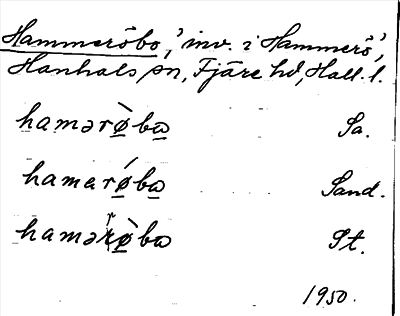 Hammeröbo, 'inv. i Hammerö',
Hanhals sn, Fjäre hd, Hall. l.
hamərø̀ba Sa.
hamarǿba Sand.
hamərø̀ba St.
1950.